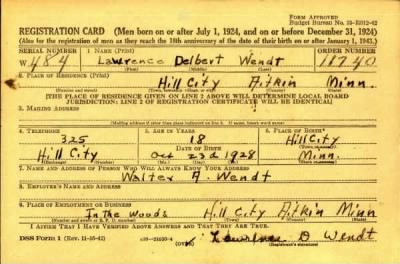 FORM APPROVED
Budget Bureau No. 33-R012-42
REGISTRATION CARD—(Men born on or after July 1, 1924, and on or before December 31, 1924)
(Also for the registration of men as they reach the 18th anniversary of the date of their birth on or after January 1, 1943.)
SERIAL NUMBER 1. NAME (Print) ORDER NUMBER
W 484 Lawrence Delbert Wendt 11740
(First) (Middle) (Last)
2. PLACE OF RESIDENCE (Print)
Hill City Aitkin Minn.
(Number and street) (Town, township, village, or city) (County) (State)
[THE PLACE OF RESIDENCE GIVEN ON LINE 2 ABOVE WILL DETERMINE LOCAL BOARD
JURISDICTION; LINE 2 OF REGISTRATION CERTIFICATE WILL BE IDENTICAL]
3. MAILING ADDRESS
[Mailing address if other than place indicated on line 2. If same, insert word same]
4. TELEPHONE 5. AGE IN YEARS 6. PLACE OF BIRTH
325 18 Hill City
DATE OF BIRTH
Hill City Oct 23d 1928 Minn.
(Exchange) (Number) (Mo.) (Day) (Yr.) (State or country)
7. NAME AND ADDRESS OF PERSON WHO WILL ALWAYS KNOW YOUR ADDRESS
Walter A. Wendt
8. EMPLOYER'S NAME AND ADDRESS
9. PLACE OF EMPLOYMENT OR BUSINESS
In The Woods Hill City Aitkin Minn
(Number and street or R. F. D. number) (Town) (County) (State)
I AFFIRM THAT I HAVE VERIFIED ABOVE ANSWERS AND THAT THEY ARE TRUE.
DSS Form 1 (Rev. 11-16-42) (OVER) Lawrence D Wendt
(Registrant's signature)